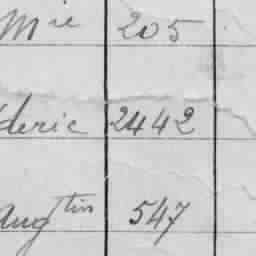 Mie 205
deric 2442
Augtin 547